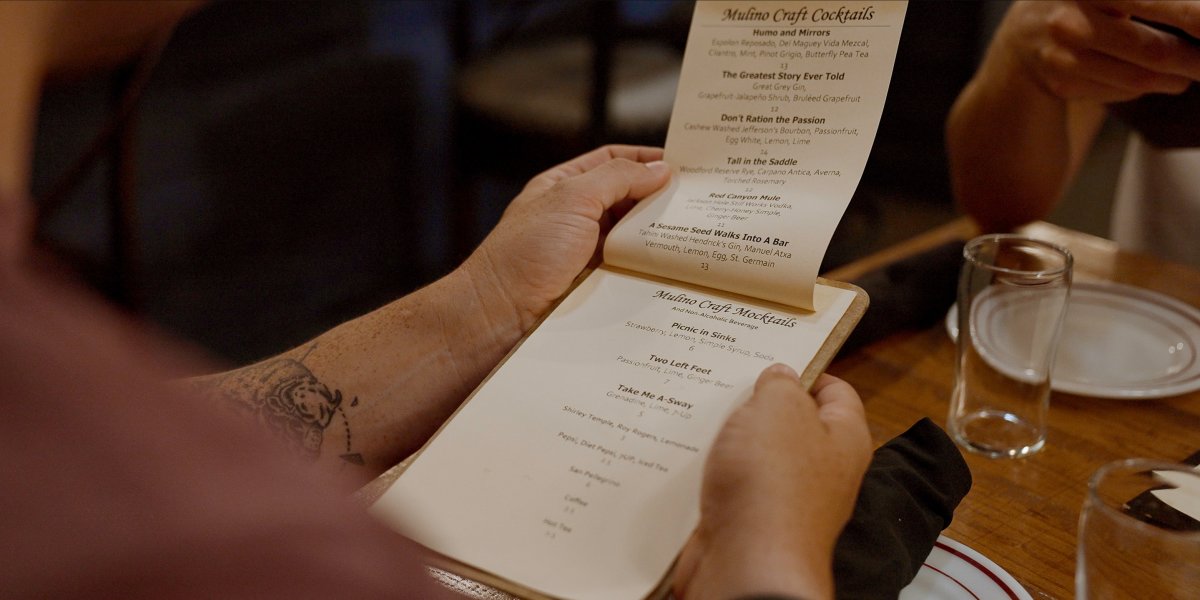 Mulino Craft Cocktails
Humo and Mirrors
Espolon Reposado, Del Maguey Vida Mezcal,
Cilantro, Mint, Pinot Grigio, Butterfly Pea Tea
13
The Greatest Story Ever Told
Great Grey Gin,
Grapefruit-Jalapeño Shrub, Bruléed Grapefruit
12
Don't Ration the Passion
Cashew Washed Jefferson's Bourbon, Passionfruit,
Egg White, Lemon, Lime
14
Tall in the Saddle
Woodford Reserve Rye, Carpano Antica, Averna,
Torched Rosemary
12
Red Canyon Mule
Jackson Hole Still Works Vodka,
Lime, Cherry-Honey Simple,
Ginger Beer
11
A Sesame Seed Walks Into A Bar
Tahini Washed Hendrick's Gin, Manuel Atxa
Vermouth, Lemon, Egg, St. Germain
13
Mulino Craft Mocktails
And Non-Alcoholic Beverage
Picnic in Sinks
Strawberry, Lemon, Simple Syrup, Soda
6
Two Left Feet
Passionfruit, Lime, Ginger Beer
7
Take Me A-Sway
Grenadine, Lime, 7-Up
5
Shirley Temple, Roy Rogers, Lemonade
3
Pepsi, Diet Pepsi, 7UP, Iced Tea
2.5
San Pellegrino
Coffee
Hot Tea